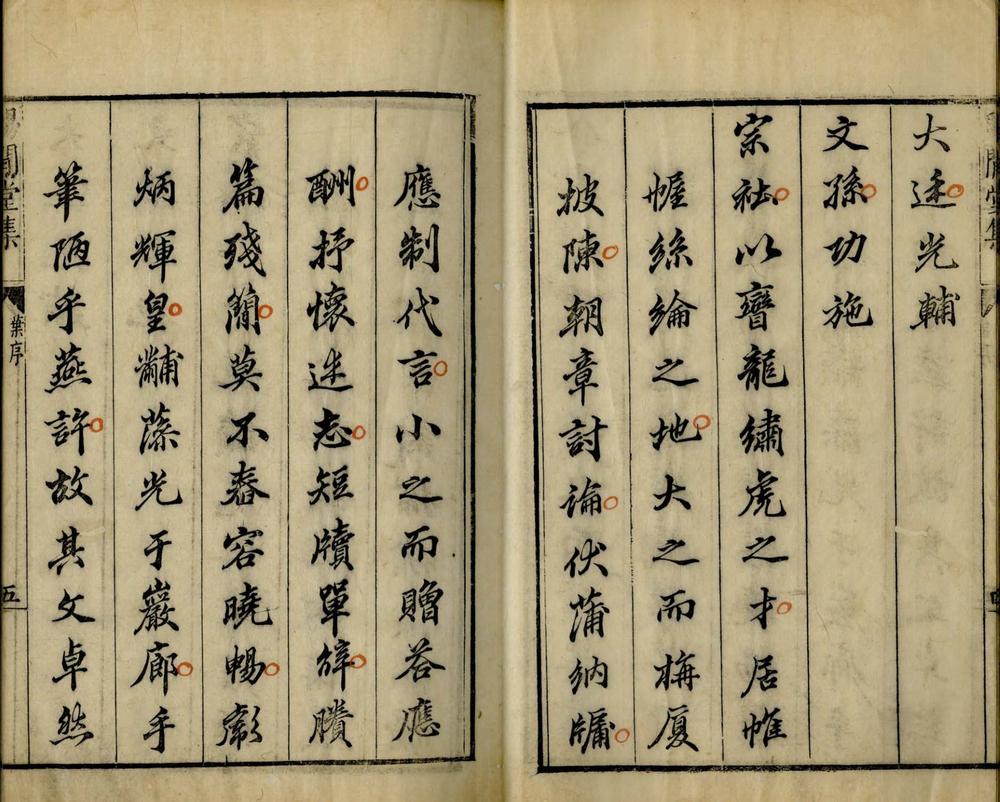 大述光輔
文孫功施
宗社以龍繡虎之才居帷
幄絲綸之地大之而梅厦
披陳朝章討論伏蒲納牖
應制代言小之而贈答應
酬抒懷述志短牘單辭賸
篇殘簡莫不舂容曉暢彪
炳輝皇黼藻光于巖廊手
筆陋乎燕許故其文卓然
堂集
葉序
五